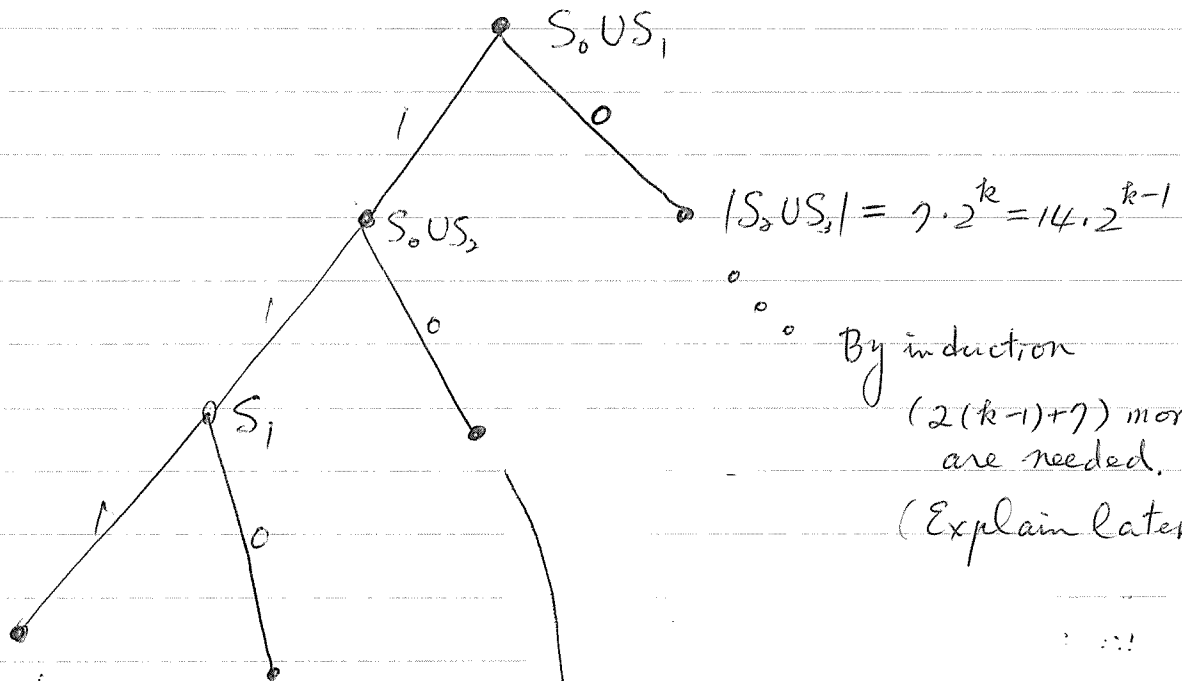 S₀∪S₁
1 0
S₀∪S₂
|S₂∪S₃| = 7·2^k = 14·2^{k-1}
1 0
By induction
(2(k-1)+7)
are needed.
S₁
(Explain later
1 0